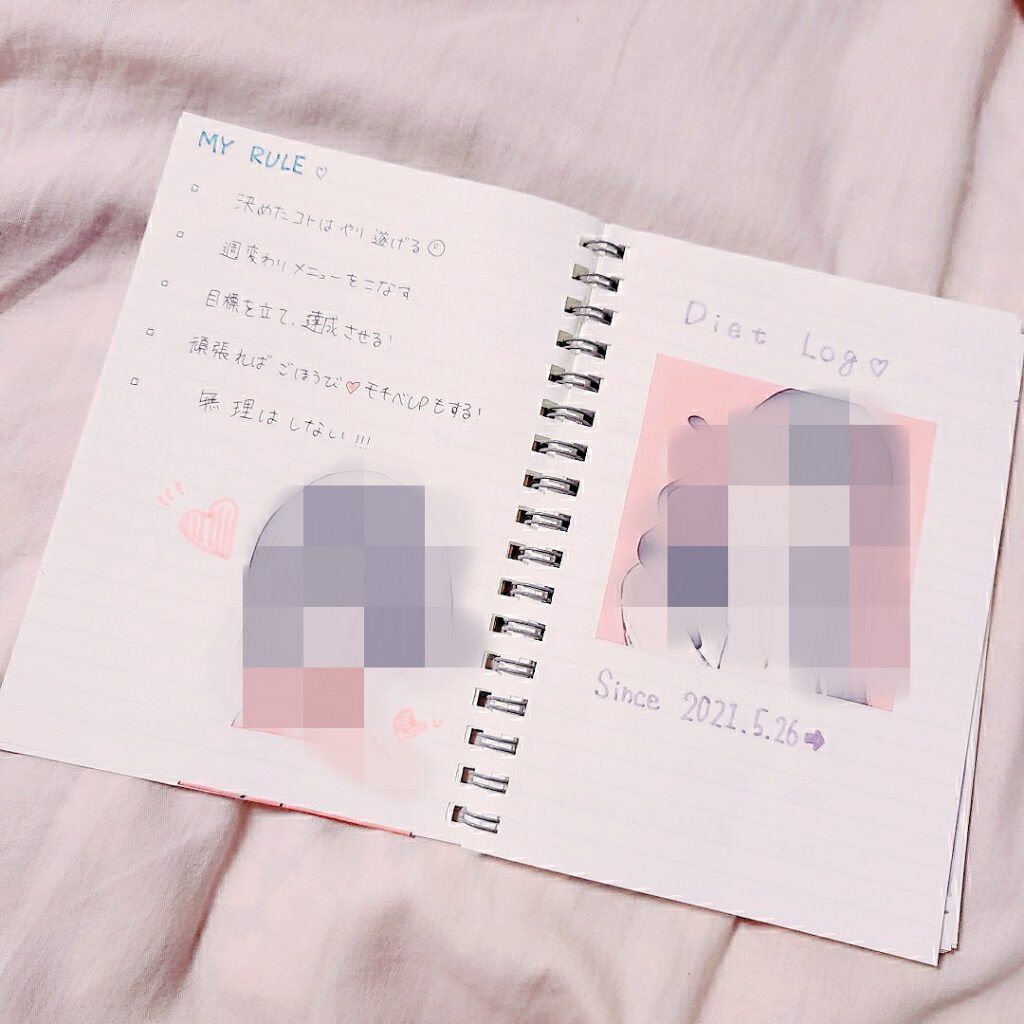 MY RULE ♡
□ 決めたコトはやり遂げる☺
□ 週変わりメニューをこなす.
□ 目標を立て、達成させる!
□ 頑張ればごほうび♡モチベUPもする!
□ 無理はしない!!!
Diet Log♡
Since 2021.5.26➡